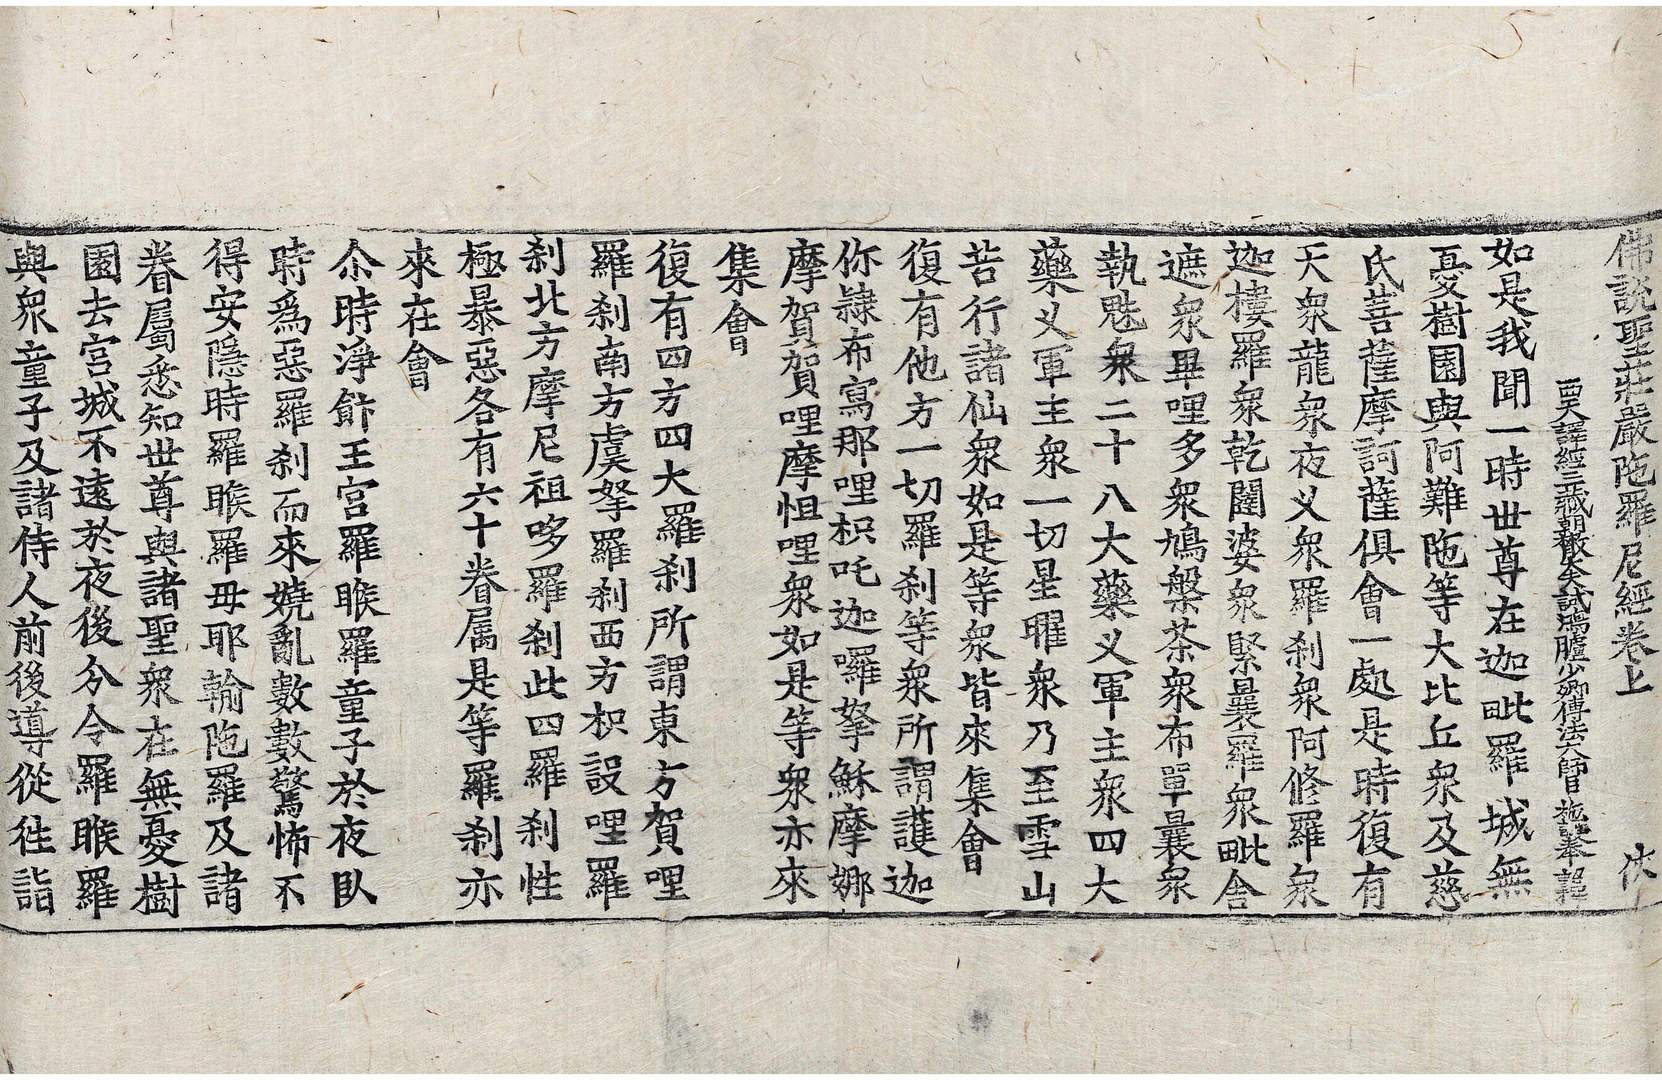 佛說聖莊嚴陁羅尼經卷上 俠
西天譯經三藏朝散大夫試鴻臚少卿傳法大師臣施護奉 詔譯
如是我聞一時世尊在迦毗羅城無
憂樹園與阿難陁等大比丘衆及慈
氏菩薩摩訶薩俱會一處是時復有
天衆龍衆夜叉衆羅刹衆阿修羅衆
迦樓羅衆乾闥婆衆緊曩羅衆毗舍
遮衆畢哩多衆鳩槃茶衆布單曩衆
執魅衆二十八大藥叉軍主衆四大
藥叉軍主衆一切星曜衆乃至雪山
苦行諸仙衆如是等衆皆來集會
復有他方一切羅刹等衆所謂護迦
你隷布寫那哩枳吒迦囉拏穌摩娜
摩賀賀哩摩怛哩衆如是等衆亦來
集會
復有四方四大羅刹所謂東方賀哩
羅刹南方虞拏羅刹西方枳設哩羅
刹北方摩尼祖哆羅刹此四羅刹性
極暴惡各有六十眷属是等羅刹亦
來在會
尒時淨飰王宮羅睺羅童子於夜臥
時爲惡羅刹而來嬈亂數數驚怖不
得安隱時羅睺羅母耶輸陁羅及諸
眷屬悉知世尊與諸聖衆在無憂樹
園去宮城不遠於夜後分令羅睺羅
與衆童子及諸侍人前後導從徃詣